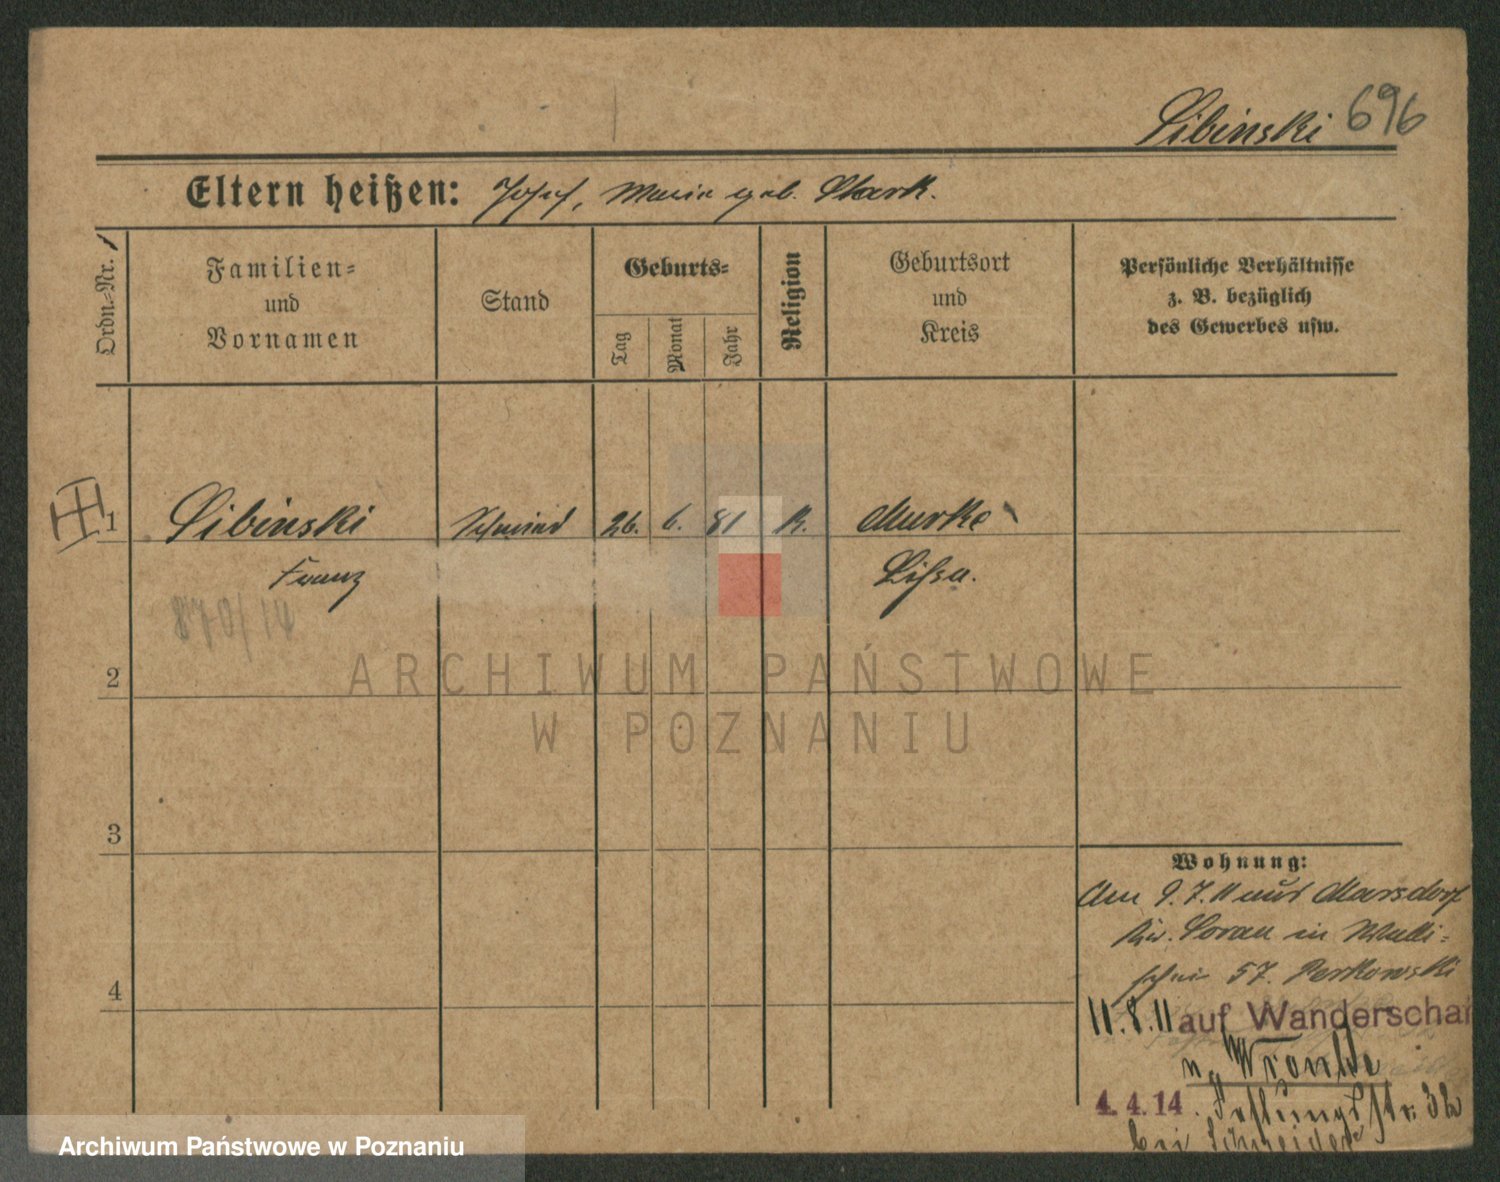 Sibinski 696
Eltern heißen: Josef, Maria geb. Skark.
Ordn.-Nr.
Familien-
und
Vornamen
Stand
Geburts-
Tag
Monat
Jahr
Religion
Geburtsort
und
Kreis
Persönliche Verhältnisse
z. B. bezüglich
des Gewerbes usw.
1 Sibinski Schmied 26. 6. 81 K. Murke
Franz Lissa.
870/14
2
ARCHIWUM PAŃSTWOWE
W POZNANIU
3
4
Wohnung:
Am 9.7.11 aus Marsdorf
Kr. Sorau in Walli-
schei 57. Perkowski
11.8.11 auf Wanderschaf
n. Wronke
4. 4. 14. Festungsstr. 32
bei Schneider
Archiwum Państwowe w Poznaniu